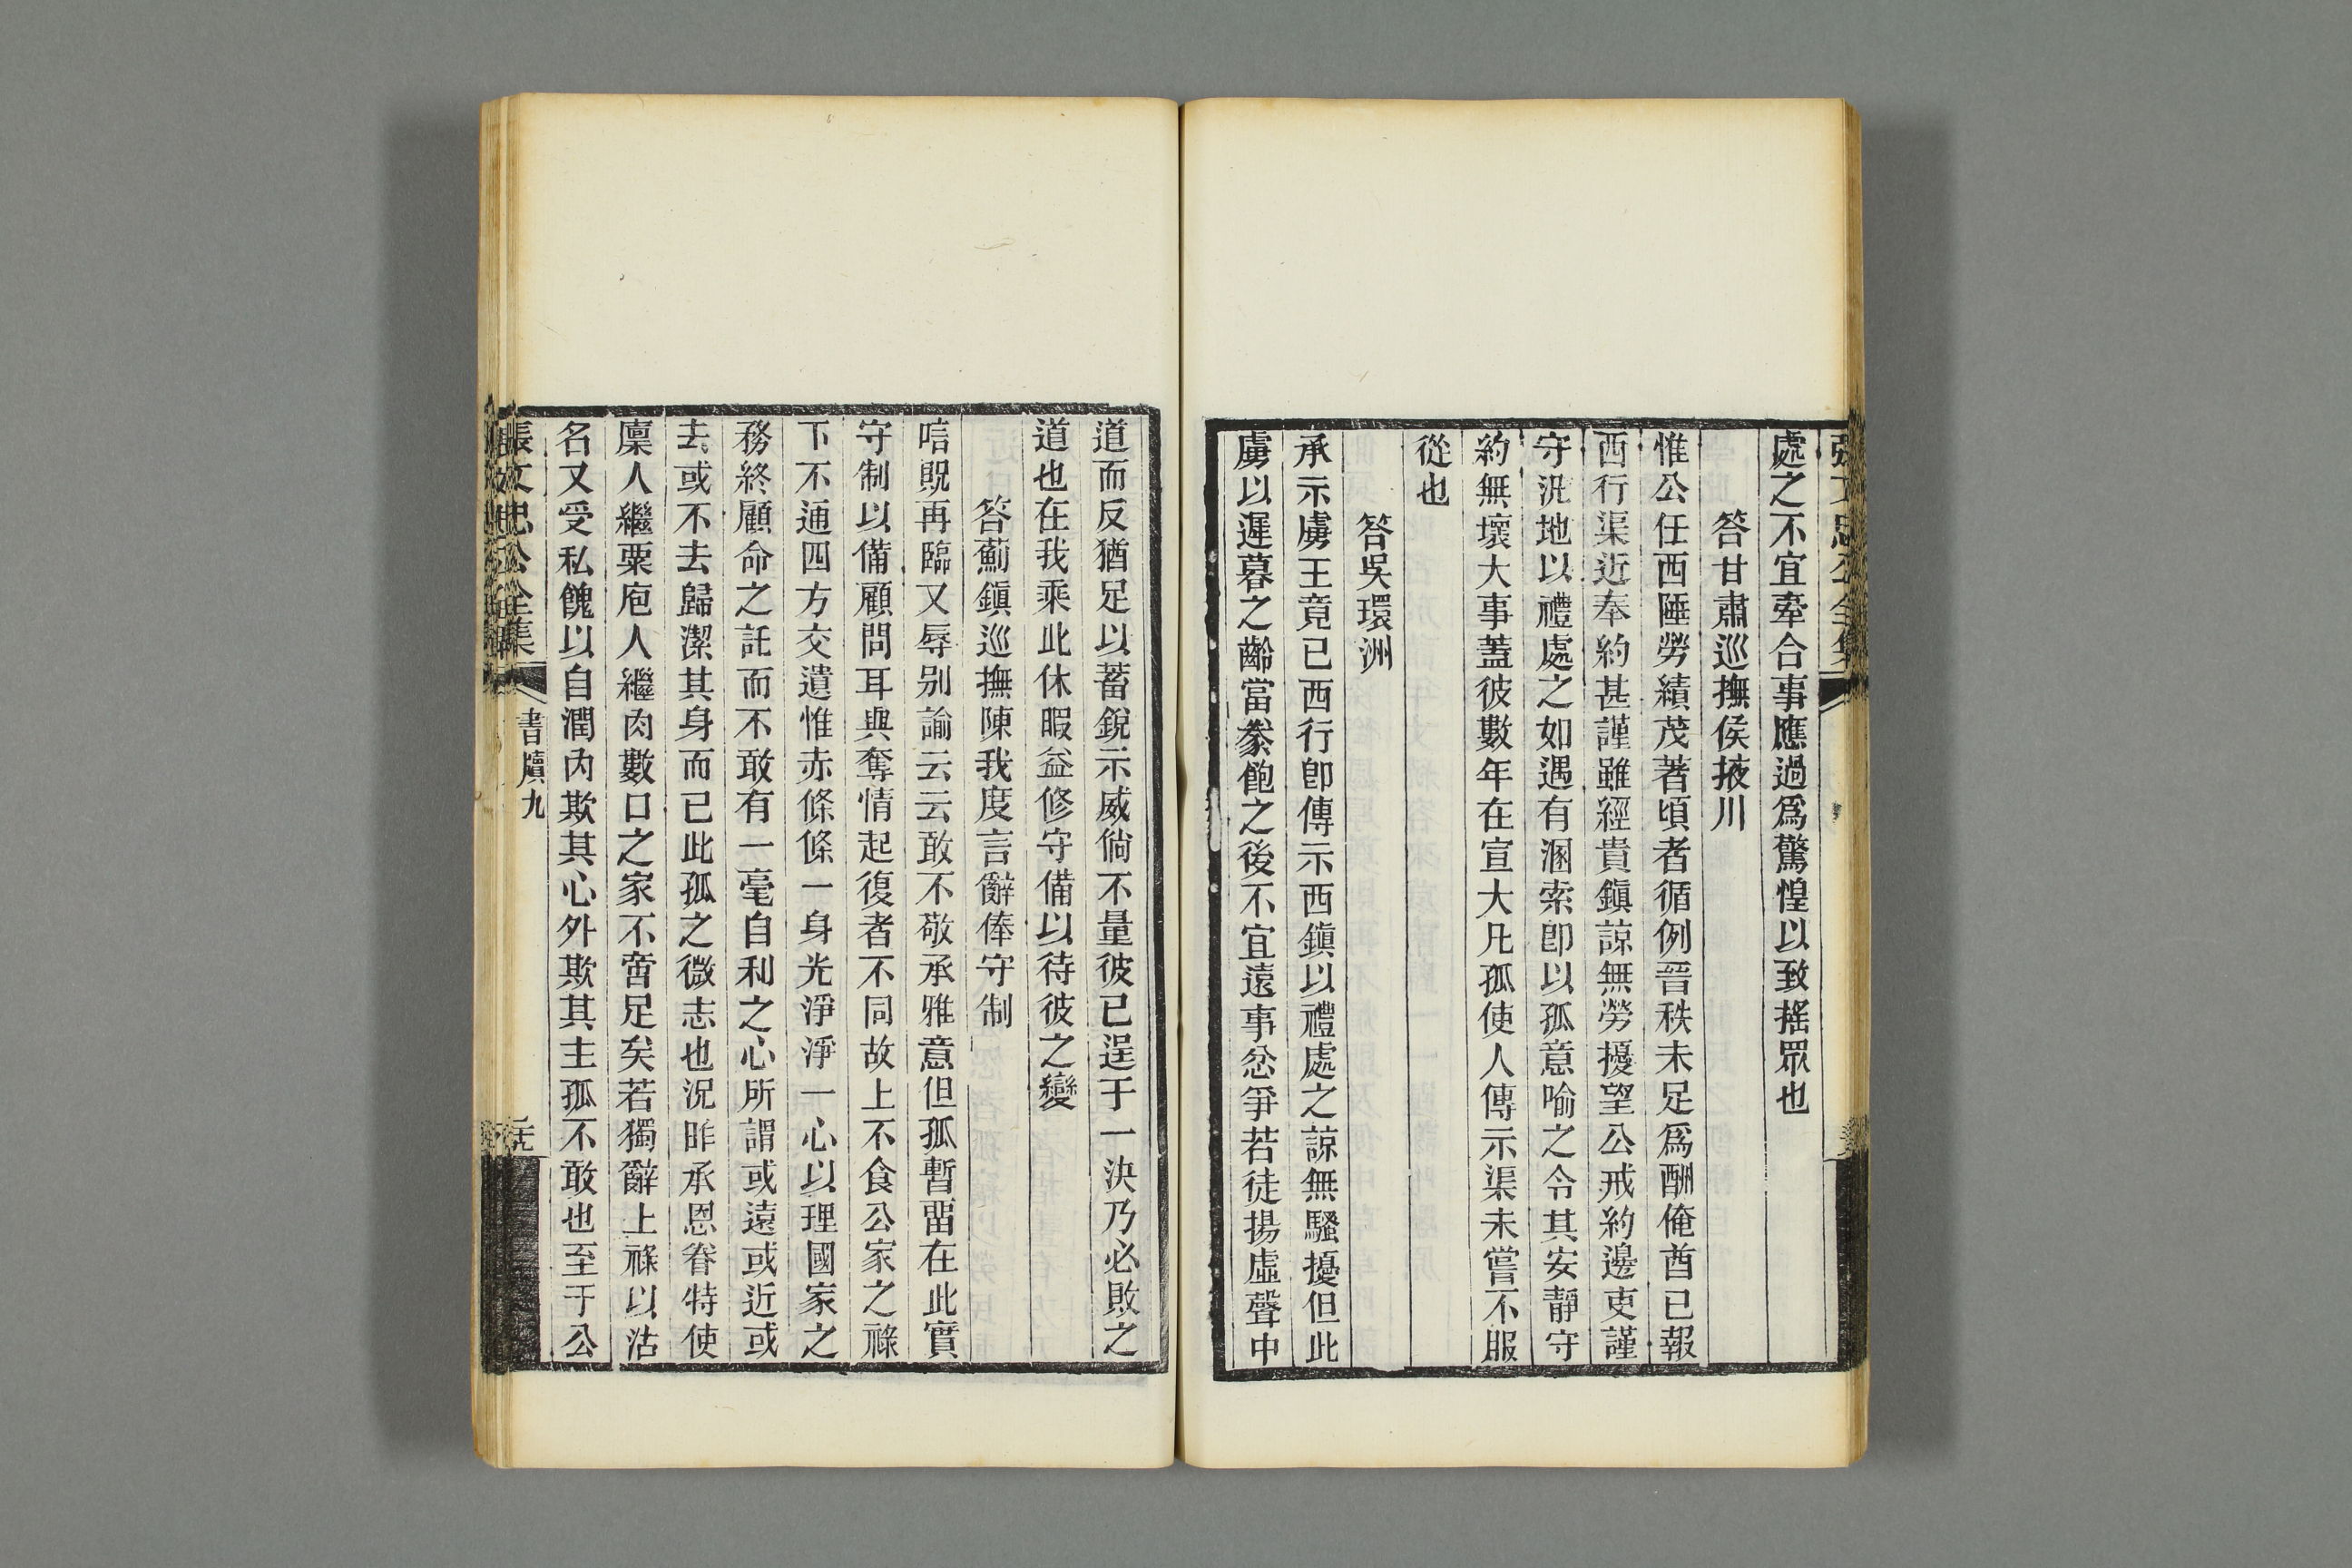 張文忠公全集
處之不宜牽合事應過爲驚惶以致搖眾也
答甘肅巡撫侯掖川
惟公任西陲勞績茂著頃者循例晉秩未足爲酬俺酋已報
西行渠近奉約甚謹雖經貴鎭諒無勞擾望公戒約邊吏謹
守汛地以禮處之如遇有溷索卽以孤意喻之令其安靜守
約無壞大事蓋彼數年在宣大凡孤使人傳示渠未嘗不服
從也
答吳環洲
承示虜王竟已西行卽傳示西鎭以禮處之諒無騷擾但此
虜以遲暮之齡當豢飽之後不宜遠事忿爭若徒揚虛聲中
道而反猶足以蓄銳示威倘不量彼已逞于一決乃必敗之
道也在我乘此休暇益修守備以待彼之變
答薊鎭巡撫陳我度言辭俸守制
唁貺再臨又辱别諭云云敢不敬承雅意但孤暫畱在此實
守制以備顧問耳與奪情起復者不同故上不食公家之祿
下不通四方交遺惟赤條條一身光淨淨一心以理國家之
務終顧命之託而不敢有一毫自利之心所謂或遠或近或
去或不去歸潔其身而已此孤之微志也況昨承恩眷特使
廩人繼粟庖人繼肉數口之家不啻足矣若獨辭上祿以沽
名又受私餽以自潤內欺其心外欺其主孤不敢也至于公
張文忠公全集
書牘九